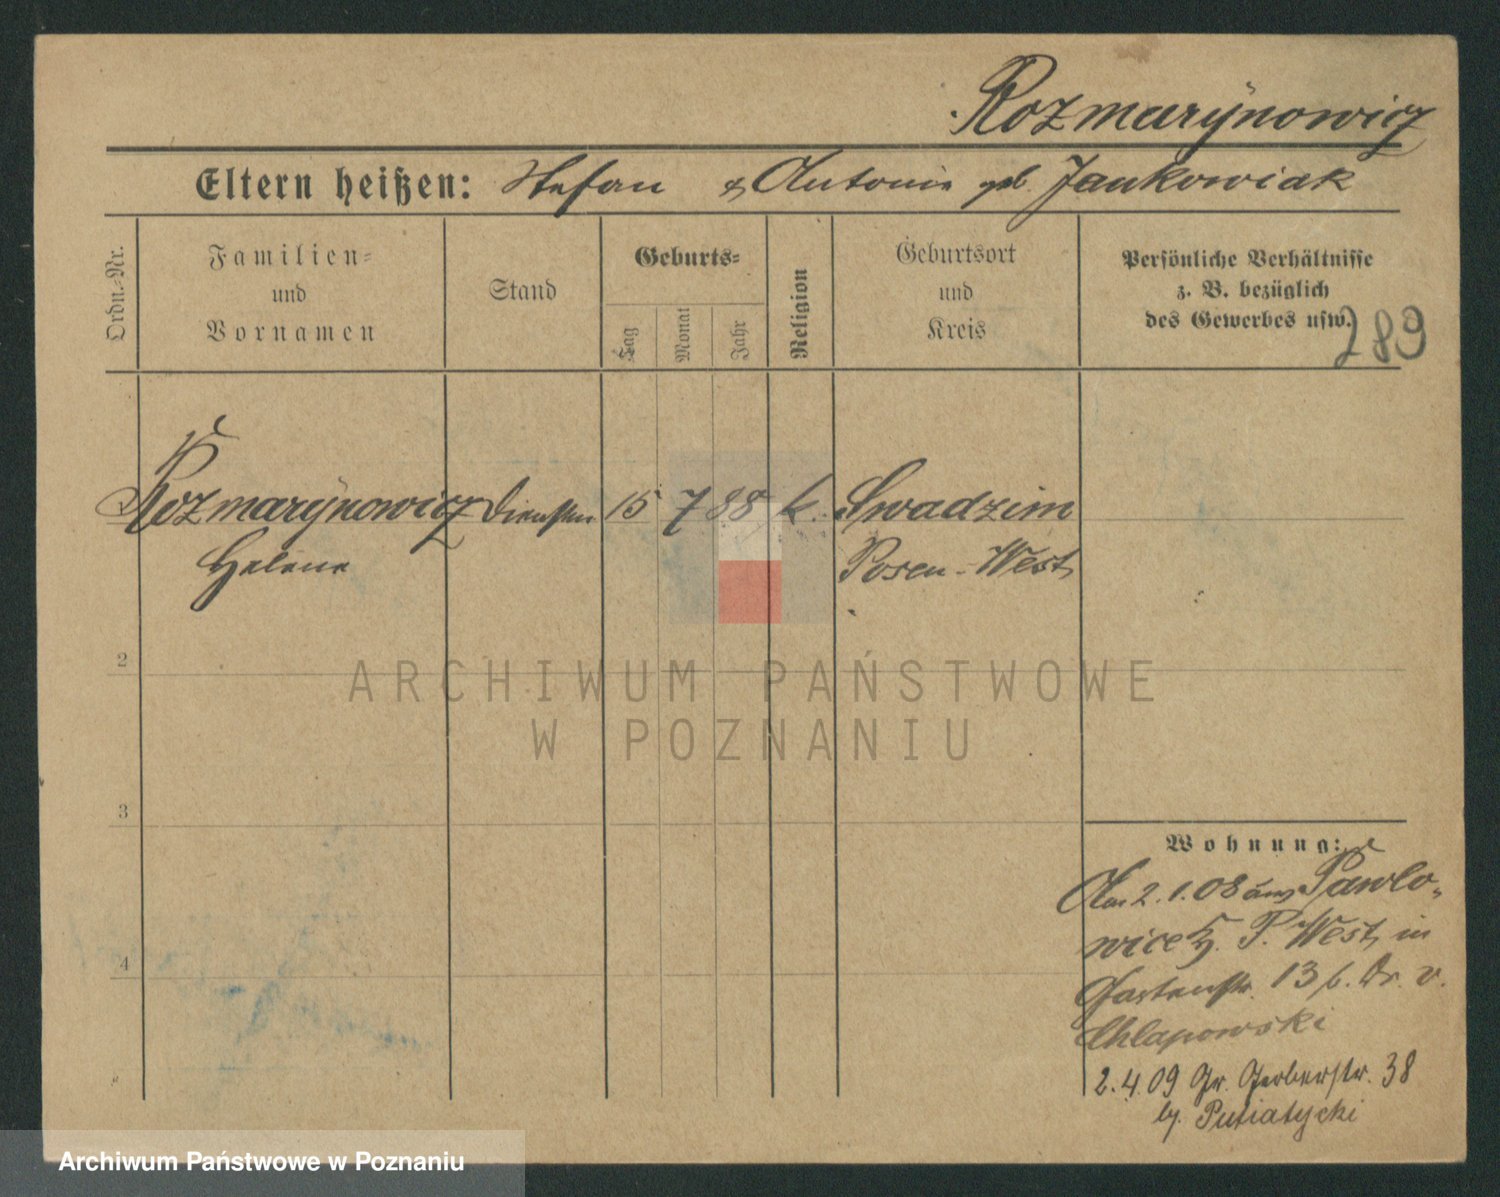 Rozmarynowicz
Eltern heißen: Stefan & Antonie geb. Jankowiak
Ordn.-Nr.
Familien-
und
Vornamen
Stand
Geburts-
Tag
Monat
Jahr
Religion
Geburtsort
und
Kreis
Persönliche Verhältnisse
z. B. bezüglich
des Gewerbes usw.
289
Rozmarynowicz Dienstm 15 7 88 k. Swadzim
Helene Posen-West
2
3
4
ARCHIWUM PAŃSTWOWE
W POZNANIU
Wohnung:
Am 2.1.08 aus Pawlo-
wice P. West, in
Gartenstr. 13 b. Dr. v.
Chlapowski
2.4.09 Gr. Gerberstr. 38
b. Putiatycki
Archiwum Państwowe w Poznaniu